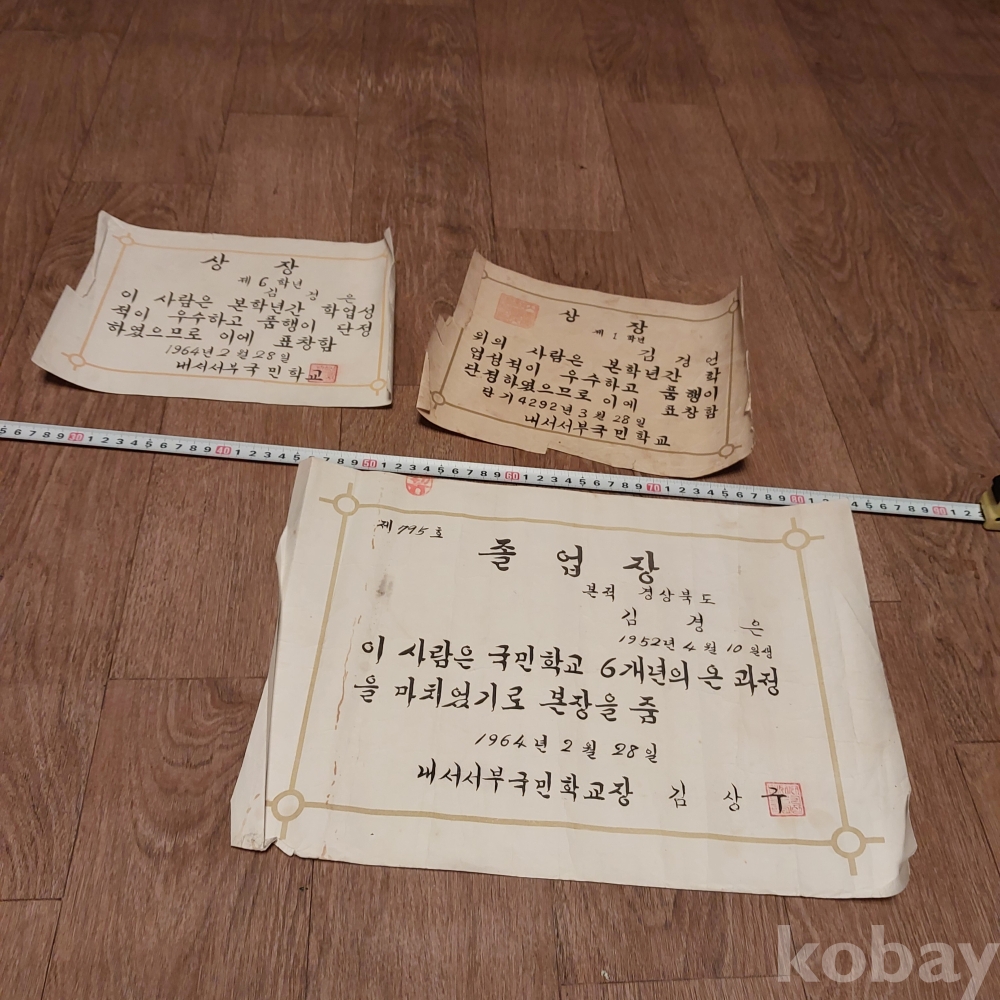 상 장
제 6 학년
김 경 은
이 사람은 본학년간 학업성
적이 우수하고 품행이 단정
하였으므로 이에 표창함
1964년 2월 28일
내서서부국민학교
상 장
제 1 학년
김 경 언
외의 사람은 본학년간 학
업성적이 우수하고 품행이
단정하였으므로 이에 표창함
단기 4292년 3월 28일
내서서부국민학교
5 6 7 8 9 30 1 2 3 4 5 6 7 8 9 40 1 2 3 4 5 6 7 8 9 50 1 2 3 4 5 6 7 8 9 60 1 2 3 4 5 6 7 8 9 70 1 2 3 4 5 6 7 8 9 80 1 2 3 4 5 6 7 8 9 90 1 2
제 795 호
졸 업 장
본적 경상북도
김 경 은
1952년 4월 10일생
이 사람은 국민학교 6개년의 온 과정
을 마치었기로 본장을 줌
1964년 2월 28일
내서서부국민학교장 김 상 구
kobay